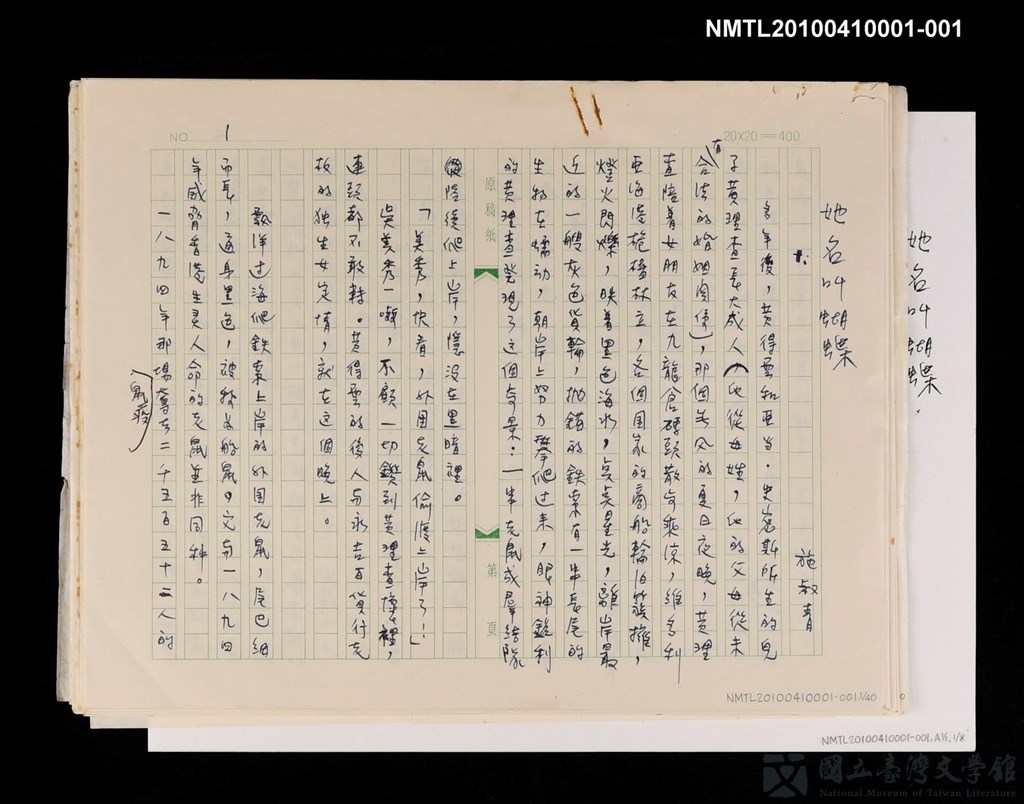 NMTL20100410001-001
她名叫蝴蝶.
NO 1
20X20=400
她名叫蝴蝶
施叔青
多年後，黃得雲和亞当·史密斯所生的兒
子黃理查長大成人（他從母姓，他的父母從未
有合法的婚姻關係），那個無風的夏日夜晚，黃理
查陪着女朋友在九龍倉碼頭散步乘涼，維多利
亞海港桅檣林立，各個國家的商船輪泊簇擁，
燈火閃爍，映着墨色海水，点点星光，離岸最
近的一艘灰色貨輪，拋錨的鉄索有一串長尾的
生物在蠕动，朝岸上努力攀爬过来，眼神銳利
的黃理查發現了這個奇景：一串老鼠成羣結隊
原稿紙
第 頁
從陸後爬上岸，隱没在黑暗裡。
「美秀，快看，外国老鼠偷渡上岸了！」
吳美秀一嚇，不顧一切鑽到黃理查懷裡，
連頭都不敢轉。黃得雲的後人与永吉百貨行老
板的独生女定情，就在這個晚上。
飄洋过海爬鉄索上岸的外国老鼠，尾巴細
而長，通身黑色，被称为船鼠，又与一八九四
年威脅香港生灵人命的老鼠並非同种。
一八九四年那場奪去二千五百五十二人的
鼠疫
NMTL20100410001-001.1/40
NMTL20100410001-001.A½.1/8
國立臺灣文學館
National Museum of Taiwan Literature